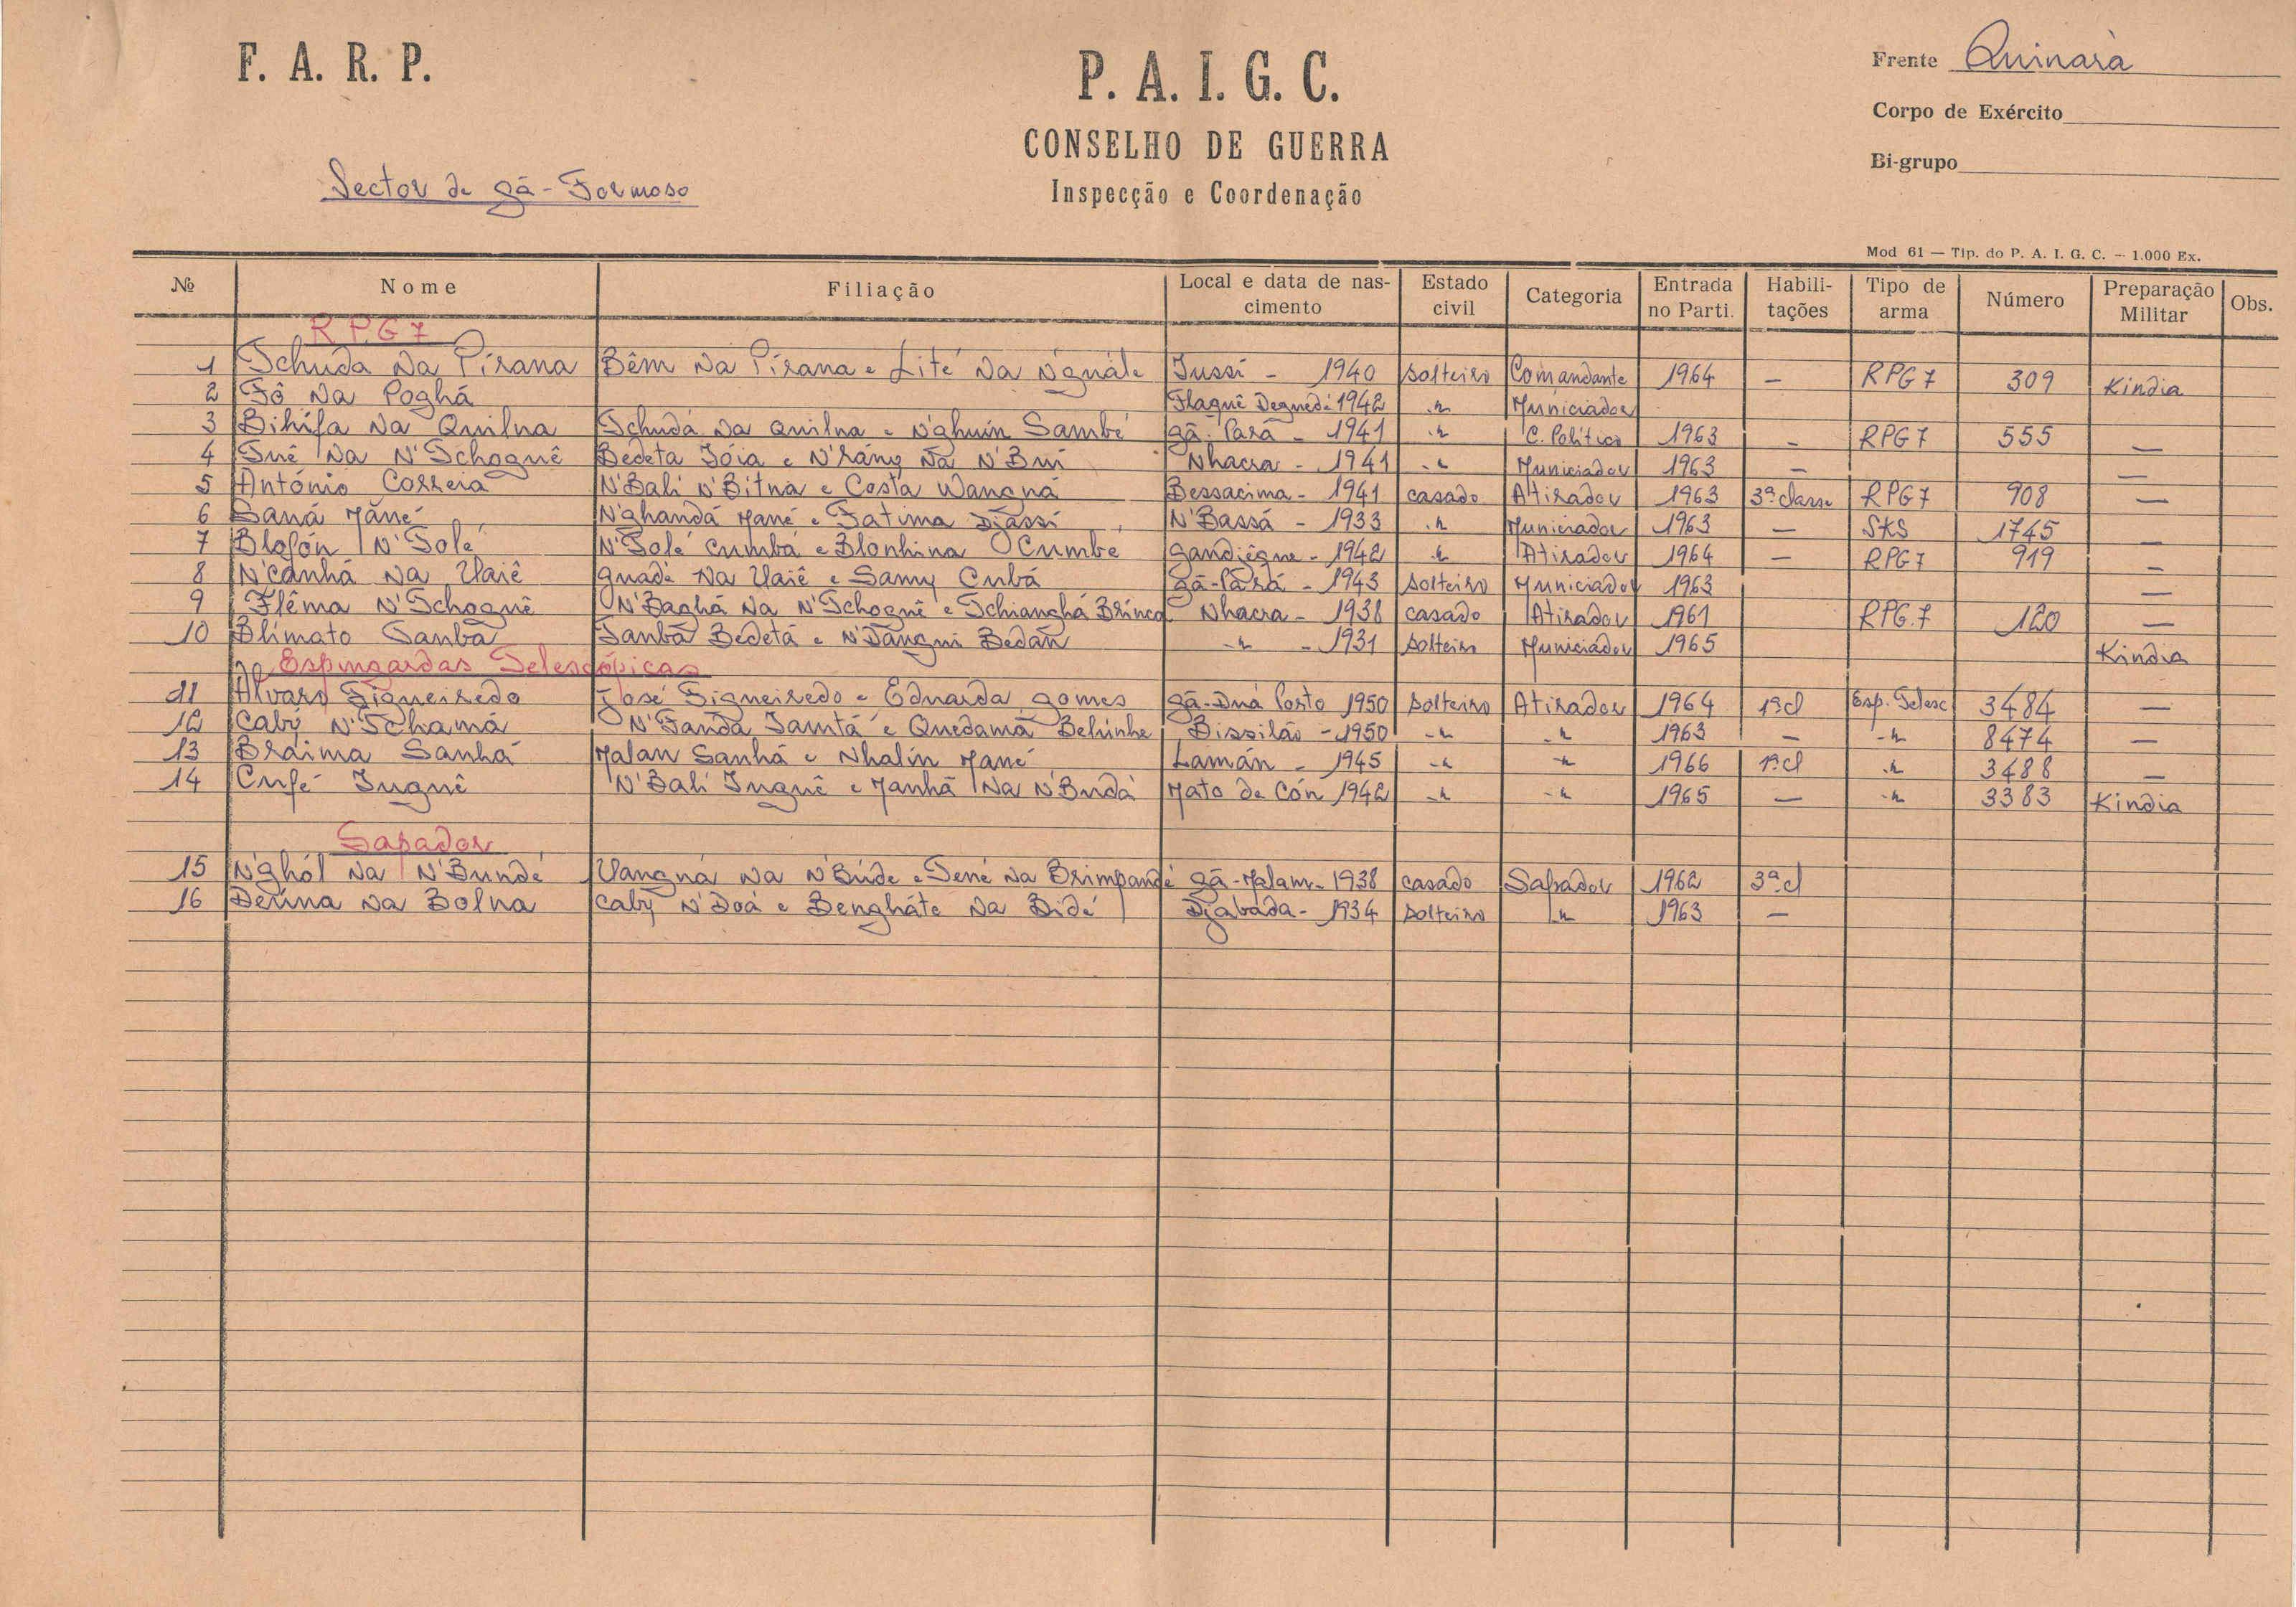 F. A. R. P.
P. A. I. G. C.
CONSELHO DE GUERRA
Inspecção e Coordenação
Frente Quinarà
Corpo de Exército
Bi-grupo
Sector de Gã-Formoso
Mod 61 — Tip. do P. A. I. G. C. — 1.000 Ex.
№ Nome Filiação Local e data de nascimento Estado civil Categoria Entrada no Parti. Habilitações Tipo de arma Número Preparação Militar Obs.
RPG7
1 Tchuda Na Pirana Bêm Na Pirana e Lité Na N'gnáte Jussi - 1940 solteiro Comandante 1964 — RPG7 309 Kindia
2 Fô Na Poghá Flaquê Degnedé 1942 -"- Municiador
3 Bihifa Na Quilna Tchudá Na Quilna e N'ghuin Sambé Gã-Pará - 1941 -"- C. Político 1963 — RPG7 555 —
4 Tuê Na N'Tchoguê Bedeta Jóia e N'ráng Na N'Bui Nhacra - 1941 -"- Municiador 1963 — —
5 António Correia N'Bali N'Bitna e Costa Wangná Bessacima - 1941 casado Atirador 1963 3ª classe RPG7 908 —
6 Saná Mané N'ghandá Mané e Fatima Djassi N'Bassá - 1933 -"- Municiador 1963 — SKS 1745 —
7 Blofón N'Tolé N'Tolé Cumbá e Blonhina Cumbé Gandiêgue - 1942 -"- Atirador 1964 — RPG7 919 —
8 N'canhá Na Uaiê Gnadé Na Uaiê e Samy Cubá Gã-Pará - 1943 solteiro Municiador 1963 —
9 Flêma N'Tchoguê N'Baghá Na N'Tchoguê e Tchianghá Brinca Nhacra - 1938 casado Atirador 1961 RPG.7 120 —
10 Blimato Sanbá Sanbá Bedetá e N'Dangui Bedan -"- - 1931 solteiro Municiador 1965 Kindia
Espingardas Telescópicas
11 Alvaro Figueiredo José Figueiredo e Eduarda Gomes Gã-Duá Porto 1950 solteiro Atirador 1964 1ª cl Esp. Telesc 3484 —
12 Caby N'Tchamá N'Fanda Jamtá e Quedamã Belúnhe Bissilão - 1950 -"- -"- 1963 — -"- 8474 —
13 Braima Sanhá Malan Sanhá e Nhalin Mané Lamán - 1945 -"- -"- 1966 1ª cl -"- 3488 —
14 Cufé Iuguê N'Bali Iuguê e Manhã Na N'Budá Mato de Cón 1942 -"- -"- 1965 — -"- 3383 Kindia
Sapador
15 N'ghól Na N'Bundé Uangná Na N'Búde e Tené Na Brimpandé Gã-Malam - 1938 casado Sapador 1962 3ª cl
16 Derina Na Bolna Caby N'Doá e Bengháte Na Bidé Djabada - 1934 solteiro -"- 1963 —